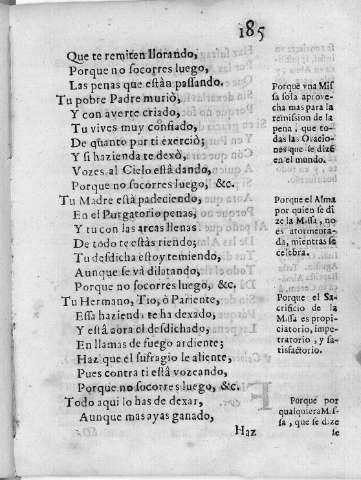 185
Que te remiten llorando,
Porque no socorres luego,
Las penas que estàn passando.
Tu pobre Padre muriò,
Y con averte criado,
Tu vives muy confiado,
De quanto por ti exerciò;
Y si hazienda te dexò,
Vozes al Cielo està dando,
Porque no socorres luego, &c.
Tu Madre està padeciendo,
En el Purgatorio penas,
Y tu con las arcas llenas
De todo te estàs riendo;
Tu desdicha estoy temiendo,
Aunque se và dilatando,
Porque no socorres luego, &c.
Tu Hermano, Tio, ò Pariente,
Essa hazienda te ha dexado,
Y està aora el desdichado,
En llamas de fuego ardiente;
Haz que el sufragio le aliente,
Pues contra ti està vozeando,
Porque no socorres luego, &c.
Todo aqui lo has de dexar,
Aunque mas ayas ganado,
Haz
Porque vna Mis
sa sola aprove-
cha mas para la
remission de la
pena, que to-
das las Oracio-
nes que se dizē
en el mundo.
Porque el Alma
por quien se di
ze la Missa, no
es atormenta-
da, mientras se
celebra.
Porque el Sa-
crificio de la
Missa es propi-
ciatorio, impe-
tratorio, y sa-
tisfactorio.
Porque por
qualquiera Mis-
sa, que se dize
se